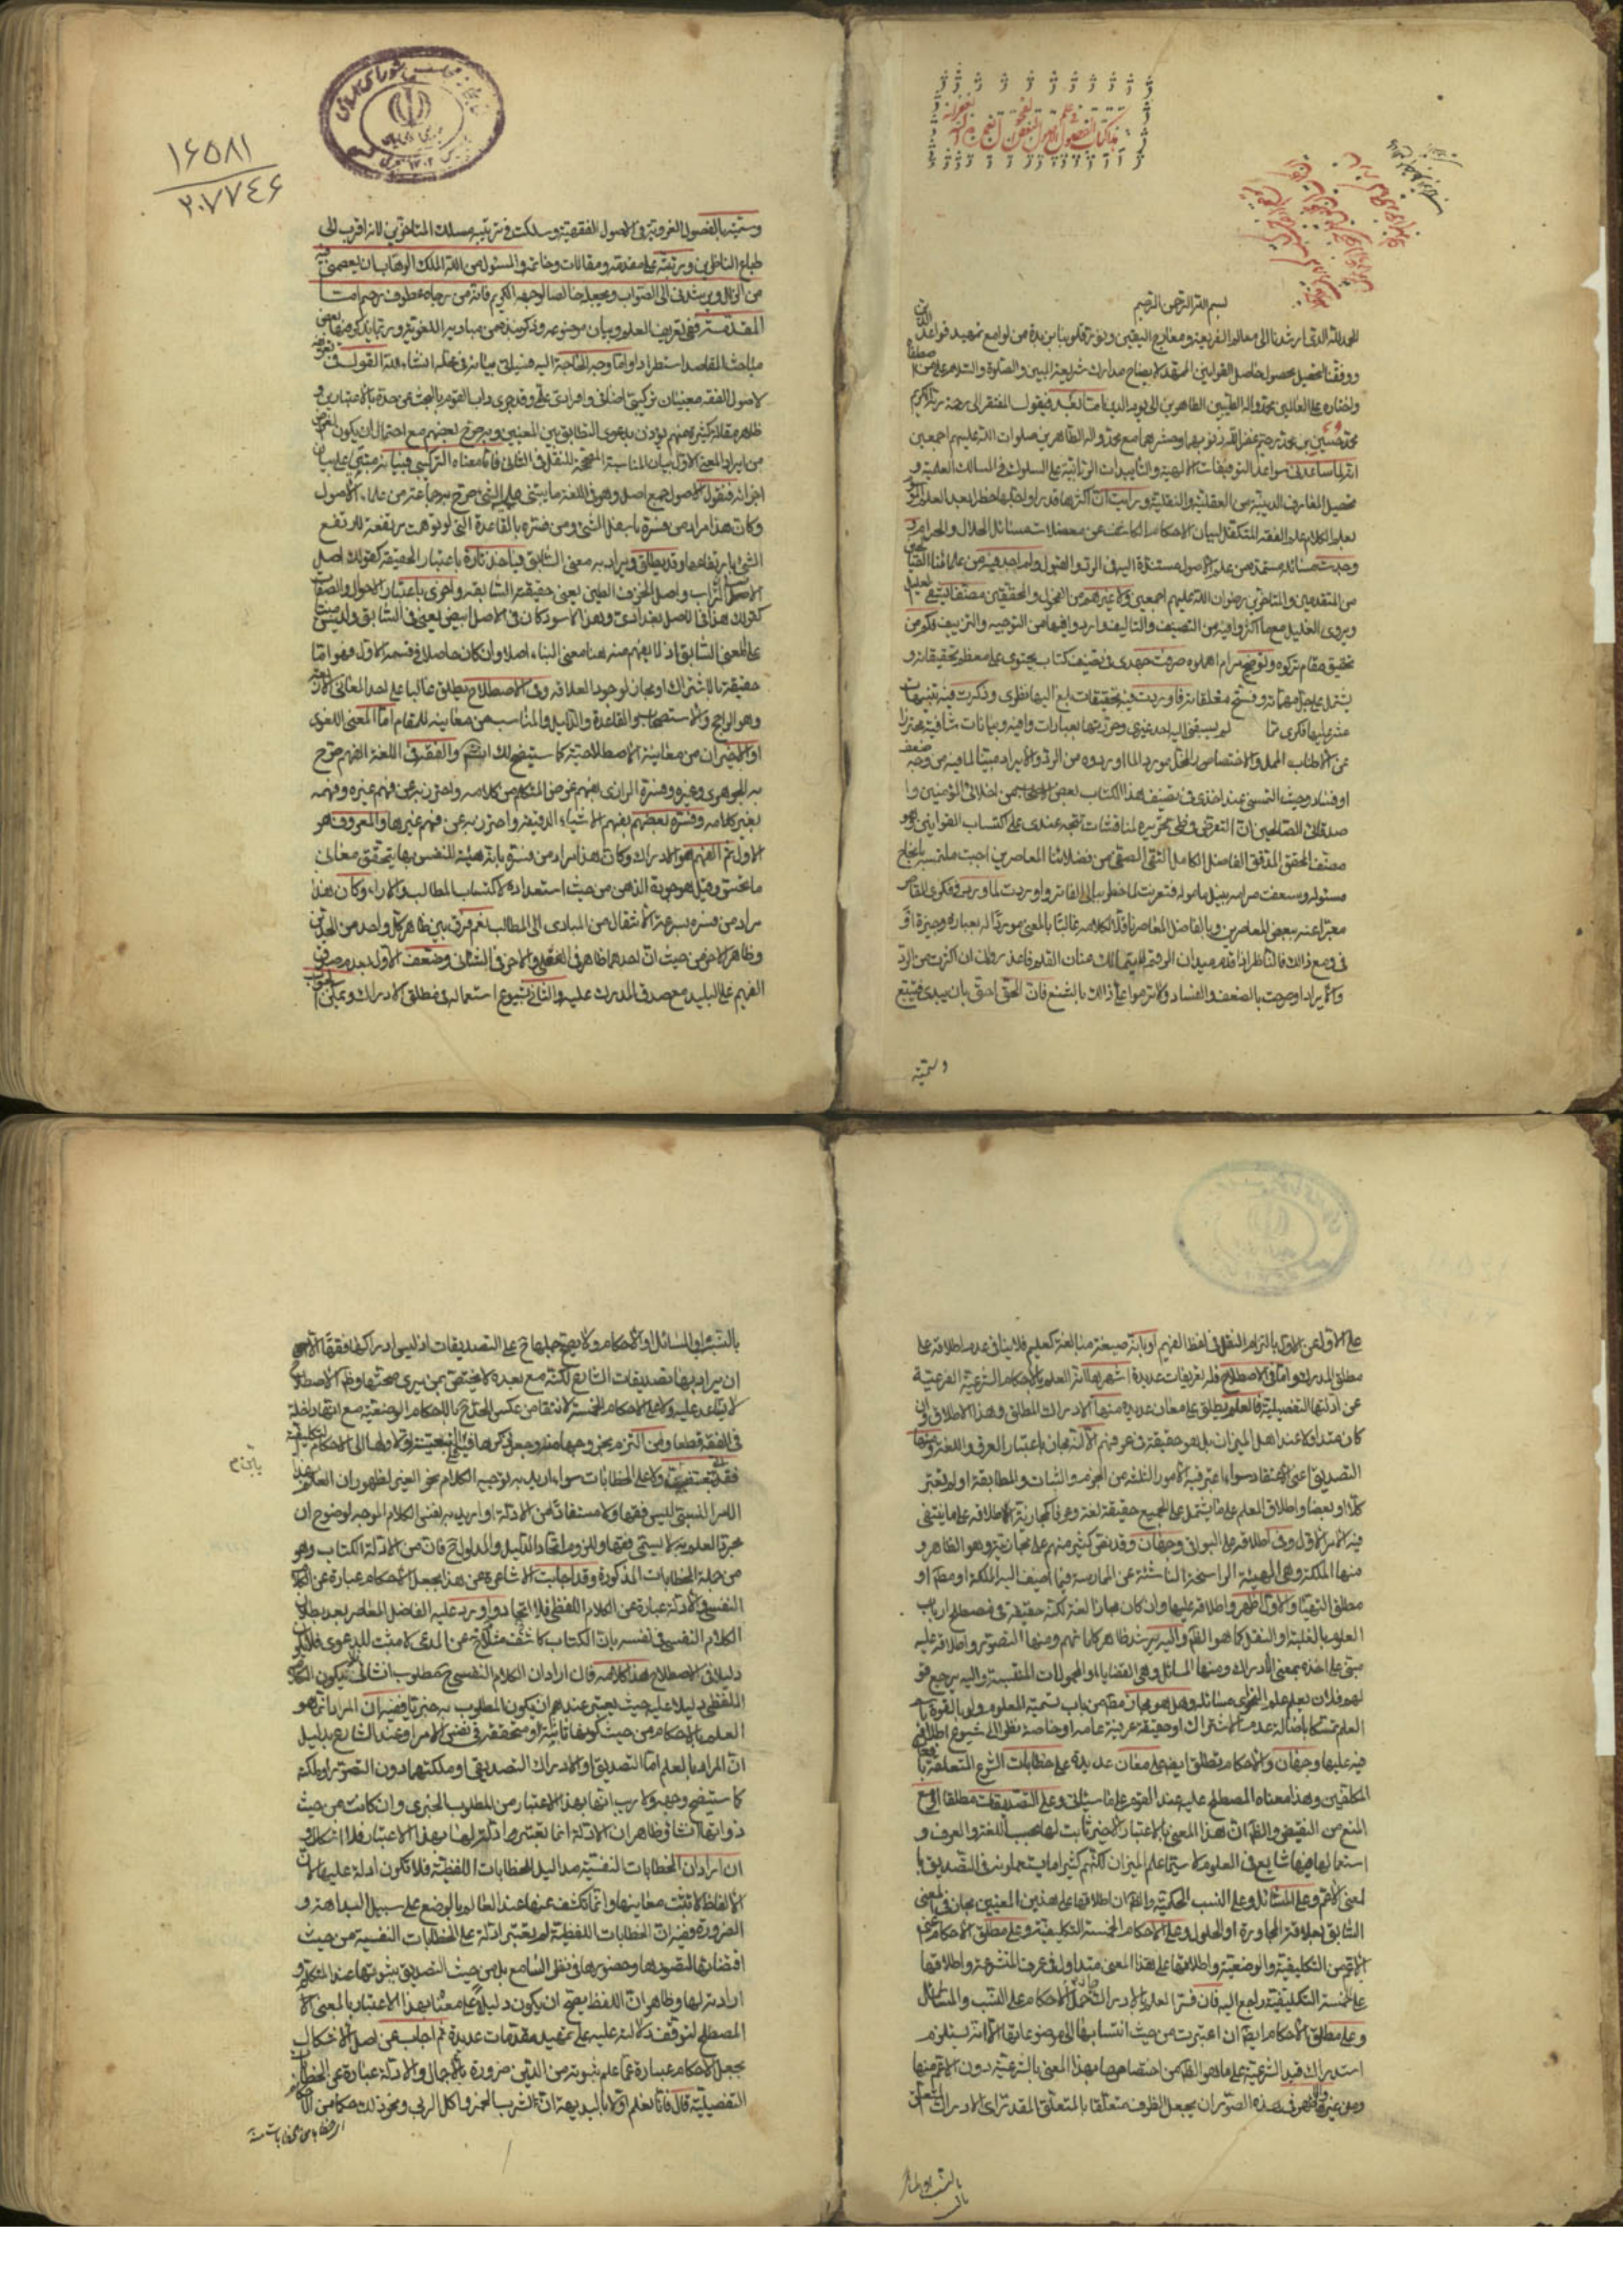 بسم الله الرحمن الرحيم
الحمد لله الذى ارشدنا الى معالم الشريعة ومعارج اليقين ونور قلوبنا من لوامع تمهيد قواعد الدين
ووفقنا لتحصيل محصول حاصل القوانين الممهدة لايضاح مدارك شريعة المبين والصلوة والسلام على من اصطفاه
واختاره على العالمين محمد واله الطيبين الطاهرين الى يوم الدين اما بعد فيقول المفتقر الى رحمة ربه الكريم
محمد حسين بن محمد رحيم غفر الله ذنوبهما وحشرهما مع محمد واله الطاهرين صلوات الله عليهم اجمعين
انه لما ساعدنى سواعد التوفيقات الالهية والتاييدات الربانية على السلوك فى المسالك العلمية و
تحصيل المعارف الدينية من العقلية والنقلية ورايت ان اكثرها قدرا واجلها خطرا بعد العلم
علم الفقه المتكفل لبيان الاحكام الكاشف عن معضلات مسائل الحلال والحرام
وجدت مسائله مستمدة من علم الاصول مستندة اليه فى الرد والقبول ولم اجد فيه من علمائنا
من المتقدمين والمتاخرين رضوان الله عليهم اجمعين ولا غيرهم من الفحول والمحققين مصنفا يشفى العليل
ويروى الغليل مع ما اكثروا فيه من التصنيف والتاليف واردوا فيها من التوجيه والتزييف فكم من
تحقيق مقام تركوه وتوضيح مرام اهملوه صرفت جهدى فى تصنيف كتاب يحتوى على معظم تحقيقاته و
يشتمل على جل مهماته وفتح مغلقاته فاوردت فيه تحقيقات بلغ اليها نظرى وذكرت فيه تنبيهات
عثر عليها فكرى مما لم يسبقنى اليه احد غيرى وحررتها بعبارات وافية وبيانات شافية محترزا
عن الاطناب الممل والاختصار المخل موردا لما اوردوه من الرد والايراد مبينا لما فيه من وجه ضعف
او فساد وحيث التمسنى عند اخذى فى تصنيف هذا الكتاب بعض من اخلائى المؤمنين وا
صدقائى الصالحين ان اتعرض فى طى تحريره لمناقشات تتجه عندى على كتاب القوانين وهو
مصنف المحقق المدقق الفاضل الكامل التقى الصفى من فضلائنا المعاصرين اجبت ملتمسه بانجاح
مسئوله وسعفت مرامه بنيل مأموله فتعرضت لما خطر ببالى الفاتر واوردت لما ورد فى فكرى القاصر
معبرا عنه ببعض المعاصرين وبالفاضل المعاصر ناقلا كلامه غالبا بالمعنى موردا له بعبارة وجيزة
فى ومع ذلك فالناظر اذا قدم ميدان الوقيتمالك عنان القلم فاعذرونى ان اكثرت من الرد
والايراد او صرحت بالضعف والفساد ولا ترموا على ذلك بالشنع فان الحق احق بان يبدى فيتبع
وسميته
١٦٥٨١
٢٠٧٧٤٦
وسميته بالفصول الغروية فى الاصول الفقهية وسلكت فى ترتيبه مسلك المتاخرين لانه اقرب الى
طباع الناظرين ورتبته على مقدمة ومقالات وخاتمة والمسئول من الله الملك الوهاب ان يعصمنى فيه
من الزلل ويرشدنى الى الصواب ويجعله خالصا لوجهه الكريم فانه من رجاه عطوف رحيم اما
المقدمة ففى تعريف العلم وبيان موضوعه وذكر نبذة من مباديه اللغوية وربما يذكر فيها بعض
مباحث المقاصد استطرادا واما وجه الحاجة اليه فسياتى بيانه فى محله انشاء الله القول فى
لاصول الفقه معنيان تركيبى اضافى وافرادى علمى وقد جرى داب القوم بالبحث عن حده بالاعتبارين و
ظاهر مقالة كثير منهم يؤذن بدعوى التطابق بين المعنيين وبه صرح بعضهم مع احتمال ان يكون الغرض
من ايراد المعنى الاول بيان المناسبة المصححة للنقل فى الثانى فاما معناه التركيبى فبيانه مبنى على بيان
اجزائه فنقول الاصول جمع اصل وهو فى اللغة ما يبتنى عليه الشئ صرح به جماعة من علماء الاصول
وكان هذا مراد من فسره باسفل الشئ ومن فسره بالقاعدة التى لو توهمت مرتفعة لارتفع
الشئ بارتفاعها وقد يطلق ويراد به معنى السابق فياخذ تارة باعتبار الحقيقة كقولك اصل
الانسان التراب واصل الخزف الطين يعنى حقيقته السابقة واخرى باعتبار الاحوال والصفات
كقولك هذا فى الاصل بغدادى وهذا الاسود كان فى الاصل ابيض يعنى فى السابق وليس مبنيا
على المعنى السابق اذ لا يفهم منه هنا معنى البناء اصلا وان كان حاصلا فى قسمه الاول وهو اما
حقيقة بالاشتراك او مجاز لوجود العلاقة وفى الاصطلاح يطلق غالبا على احد المعانى الاربعة
وهو الراجح والاستصحاب والقاعدة والدليل والمناسب من معانيه للمقام اما المعنى اللغوى
او الاخيران من معانيه الاصطلاحية كما سيتضح لك والفقه فى اللغة الفهم صرح
به الجوهرى وغيره وفسره الرازى بفهم غرض المتكلم من كلامه واحترز به عن فهم غيره وفهمه
بغير كلامه وفسره بعضهم بفهم الاشياء الدقيقة واحترز به عن فهم غيرها والمعروف هو
الاول ثم الفهم هو الادراك وكان هذا مراد من فسره بانه هيئة للنفس بها يتحقق معانى
ما تحس وقيل هو جودة الذهن من حيث استعداده لاكتساب المطالب والاراء وكان هذا
مراد من فسره بسرعة الانتقال من المبادى الى المطالب نعم فرق بين ظاهر كل واحد من الحدين
وظاهر الاخر من حيث ان احدهما ظاهر فى الفعلى والاخر فى الشانى وضعف الاول بعدم صدق
الفهم على البليد مع صدق المدرك عليه والثانى بشيوع استعماله فى مطلق الادراك ويمكن الجواب
على الاول عن الاول بالتزام النقل فى لفظ الفهيم او بانه صيغة مبالغة كعليم فلا ينافى عدم اطلاقه على
مطلق المدرك واما فى الاصطلاح فله تعريفات عديدة اشهرها انه العلم بالاحكام الشرعية الفرعية
عن ادلتها التفصيلية فالعلم يطلق على معان عديدة منها الادراك المطلق وهذا الاطلاق وان
كان متداولا عند اهل الميزان بل هو حقيقة فى عرفهم الا انه مجاز باعتبار العرف واللغة ومنها
التصديق اعنى الاعتقاد سواء اعتبر فيه الامور الثلثة من الجزم والثبات والمطابقة او لم يعتبر
كلا او بعضا واطلاق العلم على ما يشتمل على الجميع حقيقة لغة وعرفا كمجازية الاطلاقه على ما ينتفى
فيه الامر الاول وفى اطلاقه على البواقى وجهان وقد نص كثير منهم على مجازيته وهو الظاهر و
منها الملكة وهى الهيئة الراسخة الناشئة عن الممارسة فيما اضيف اليه الملكة او مطم او
مطلق التهيأ والاول اظهر واطلاقه عليها وان كان مجازا لغة لكنه حقيقة فى مصطلح ارباب
العلوم بالغلبة او النقل كما هو الظ واليه يرشد ظاهر كلماتهم ومنها التصور واطلاقه عليه
مبنى على اخذه بمعنى الادراك ومنها المسائل وهى القضايا او المحمولات المنتسبة واليه يرجع قو
لهم فلان يعلم علم النحو اى مسائله وهل هو مجاز مطم من باب تسمية المعلوم ولو بالقوة با
العلم تمسكا باصالة عدم الاشتراك او حقيقة عرفية عامة او خاصة نظرا الى شيوع اطلاقه
فيه عليها وجهان والاحكام تطلق ايض على معان عديدة على خطابات الشرع المتعلقة بافعال
المكلفين وهذا معناه المصطلح عليه عند القوم على ما سياتى وعلى التصديقات مطلقا او مع
المنع من النقيض والظ ان هذا المعنى بالاعتبار الاخير ثابت لها بحسب اللغة والعرف و
استعمالها فيها شايع فى العلوم لا سيما علم الميزان لكنهم كثيرا ما يستعملونه فى التصديق با
لمعنى الاعم وعلى المسائل وعلى النسب الحكمية والظ ان اطلاقها على هذين المعنيين مجاز فى المعنى
السابق بعلاقة المجاورة او الحلول وعلى الاحكام الخمسة التكليفية وعلى مطلق الاحكام اعنى
الاعم من التكليفية والوضعية واطلاقها على هذا المعنى متداول فى عرف المتشرعة واطلاقها
على الخمسة التكليفية راجع اليه فان فسر العلم بالادراك حمل الاحكام على النسب والمسائل
وعلى مطلق الاحكام ايض ان اعتبرت من حيث انتسابها الى موضوعاتها الا انه يستلزم
استدراك قيد الشرعية على ما هو الظ من اختصاصها بهذا المعنى بالشرعية دون الاعم منها
ومن غيرها والاظهر فى هذه الصور ان يجعل الظرف متعلقا بالمتعلق المقدر اى الادراك المتعلق
بالنسب او المسائل او الاحكام ولا يصح حملها ح على التصديقات اذ ليس ادراكها فقها اللهم
ان يراد بها تصديقات الشارع لكنه مع بعده لا يختص بمن يرى صحتها وظ الاصطلاح
لا يساعد عليه ولا على الاحكام الخمسة لانتقاض عكس الحد ح بالاحكام الوضعية مع انها داخلة
فى الفقه قطعا ومن التزم بخروجها عنه وجعل ذكرها فيه تبعية او اولها الى الاحكام التكليفية
فقد تعسف ولا على الخطابات سواء اريد بها توجيه الكلام نحو الغير لظهور ان العلم بهذا
الامر النسبى ليس فقها ولا مستفادا من الادلة او اريد به نفس الكلام الموجه لوضوح ان
مجرد العلم به لا يسمى فقها وللزوم اتحاد الدليل والمدلول ح فان من الادلة الكتاب وهو
من جملة الخطابات المذكورة وقد اجابت الاشاعرة عن هذا بجعل الاحكام عبارة عن الكلام
النفسى والادلة عبارة عن الكلام اللفظى فلا اتحاد واورد عليه الفاضل المعاصر بعد بطلان
الكلام النفسى فى نفسه بان الكتاب كاشف عن المدعى لا مثبت للدعوى فلا يكون
دليلا فى الاصطلاح هذا كلامه فان اراد ان الكلام النفسى ح مطلوب انشائى فلا يكون الكلام
اللفظى دليلا عليه حيث يعتبر عندهم ان يكون المطلوب به خبريا ففيه ان المراد انما هو
العلم بالاحكام من حيث كونها ثابتة او متحققة فى نفس الامر او عند الشارع بدليل
ان المراد بالعلم اما التصديق او الادراك التصديقى او ملكتهما دون التصور او ملكته
كما سيتضح وجهه ولا ريب انها بهذا الاعتبار من المطلوب الخبرى وان كانت من حيث
ذواتها انشاء وظاهر ان الادلة انما تعتبر ادلة لها بهذا الاعتبار فلا اشكال و
ان اراد ان الخطابات النفسية مداليل للخطابات اللفظية فلا تكون ادلة عليها لان
الالفاظ لا تثبت معانيها وانما تكشف عنها عند العالم بالوضع على سبيل البداهة و
الضرورة ففيه ان الخطابات اللفظية لم يعتبر ادلة على الخطابات النفسية من حيث
اقتضائها لتصورها وحضورها فى نظر السامع بل من حيث التصديق بثبوتها عند المتكلم و
ارادته لها وظاهر ان اللفظ يصح ان يكون دليلا على معناه بهذا الاعتبار بالمعنى
المصطلح لتوقف دلالته عليه على تمهيد مقدمات عديدة ثم اجاب عن اصل الاشكال
بجعل الاحكام عبارة عما علم ثبوته من الدين ضرورة بالاجمال والادلة عبارة عن الخطابات
التفصيلية قال فانا نعلم اولا بالبديهة ان لشرب الخمر واكل الربا ونحو ذلك حكما من الاحكام